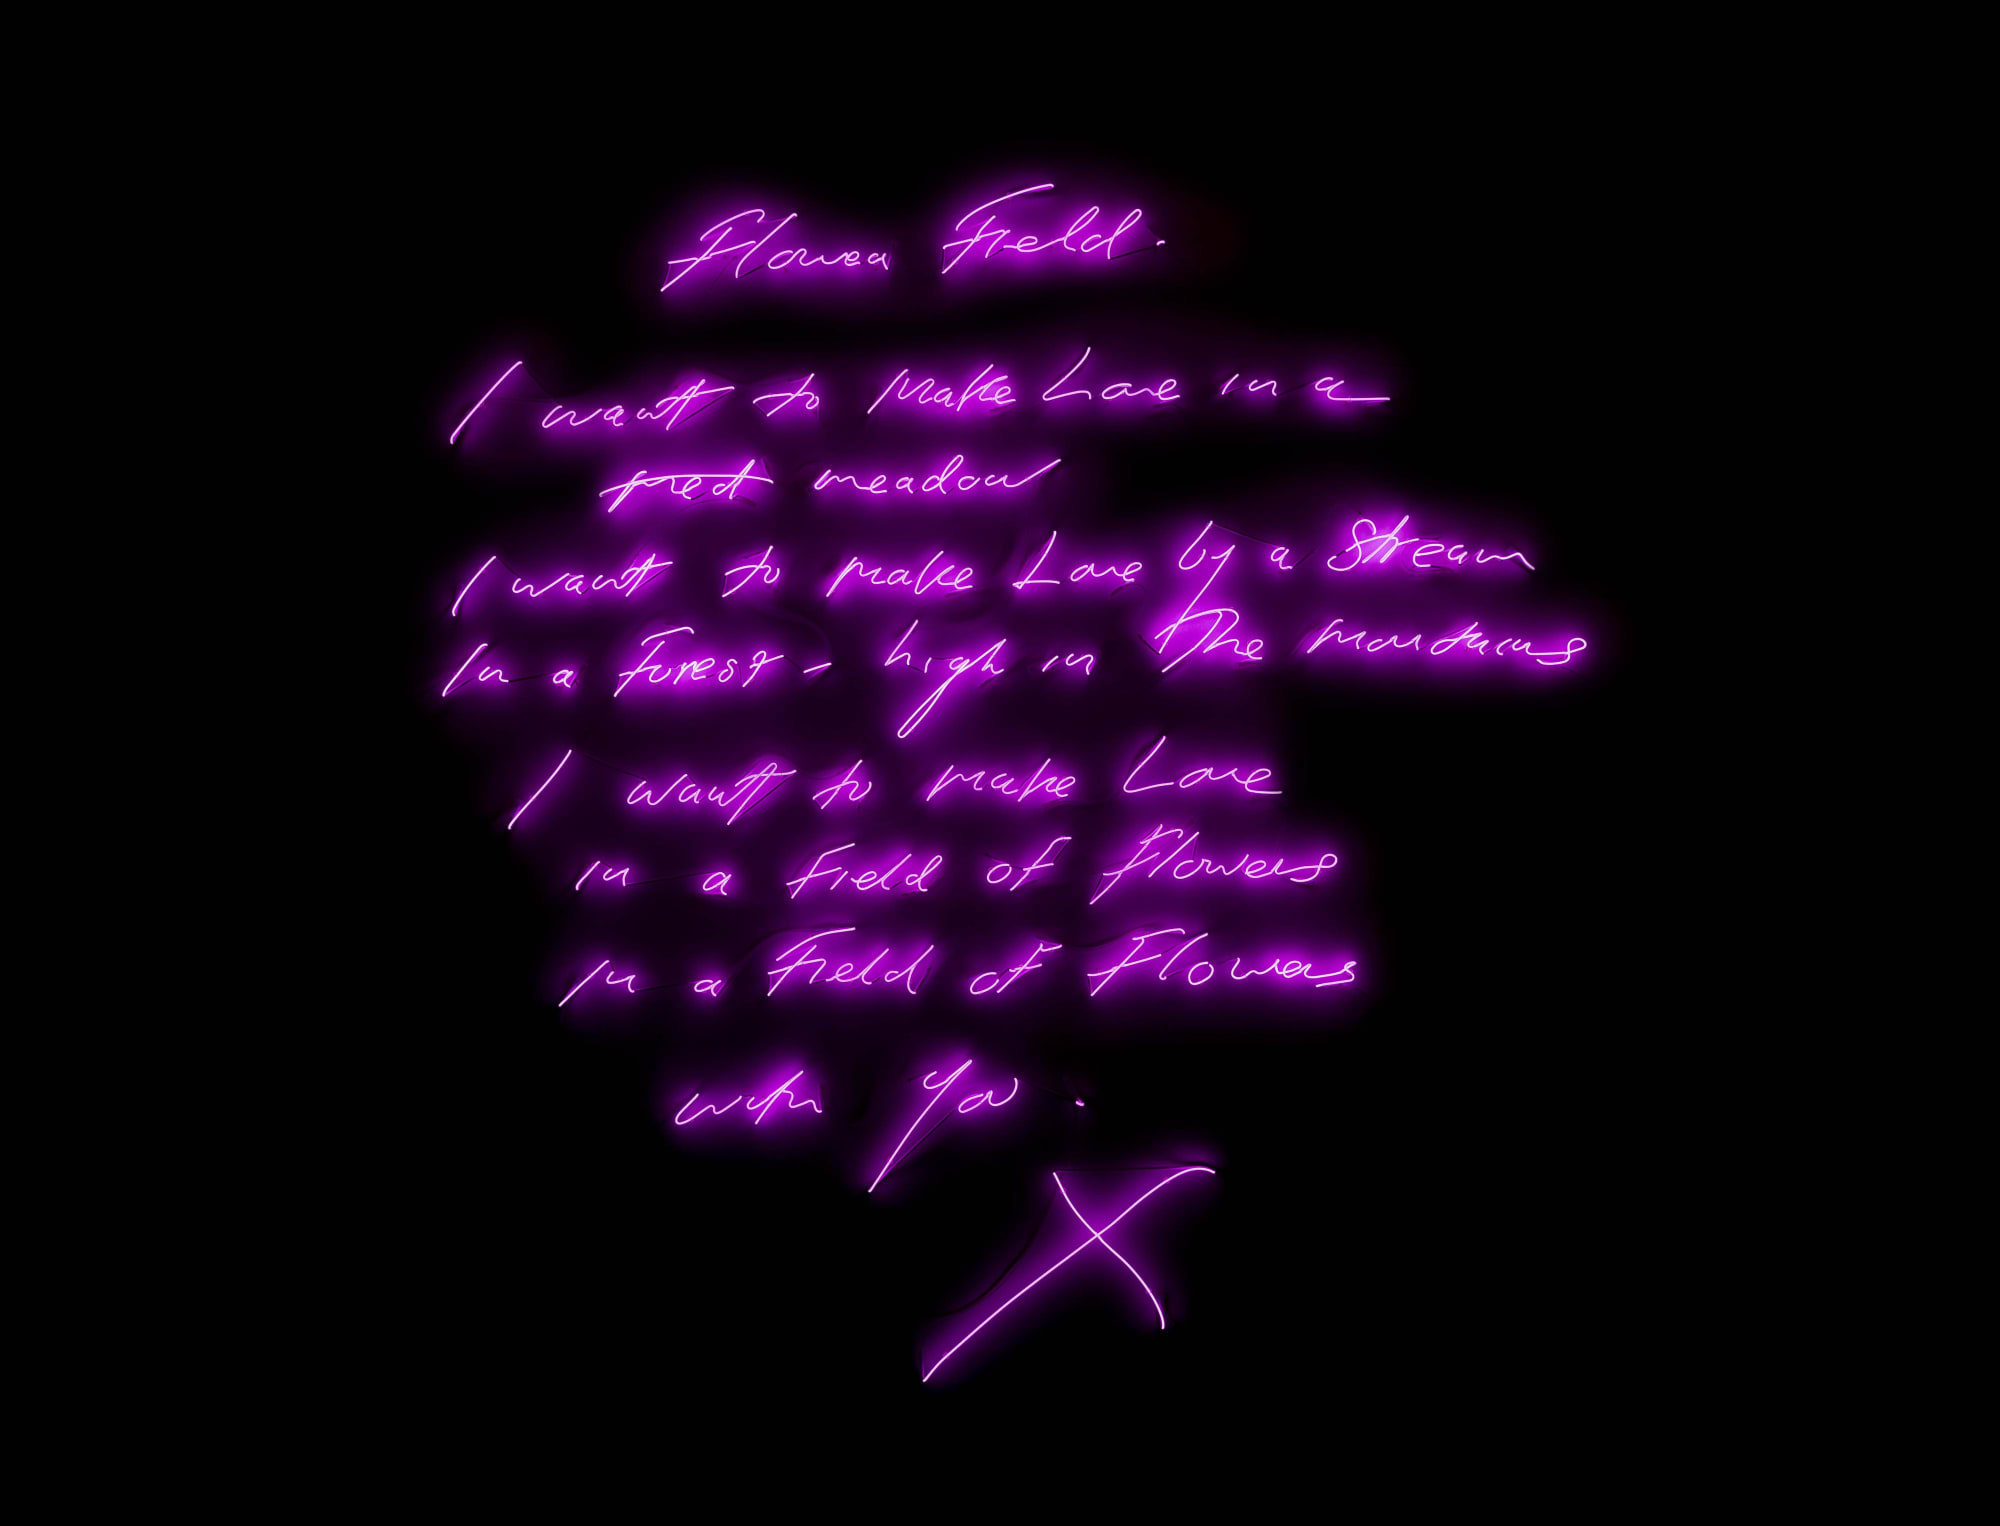 Flower Field.
I want to Make Love in a
meadow
I want to make Love by a Stream
In a Forest - high in The mountains
I want to make Love
in a Field of Flowers
In a Field of Flowers
with you.
X